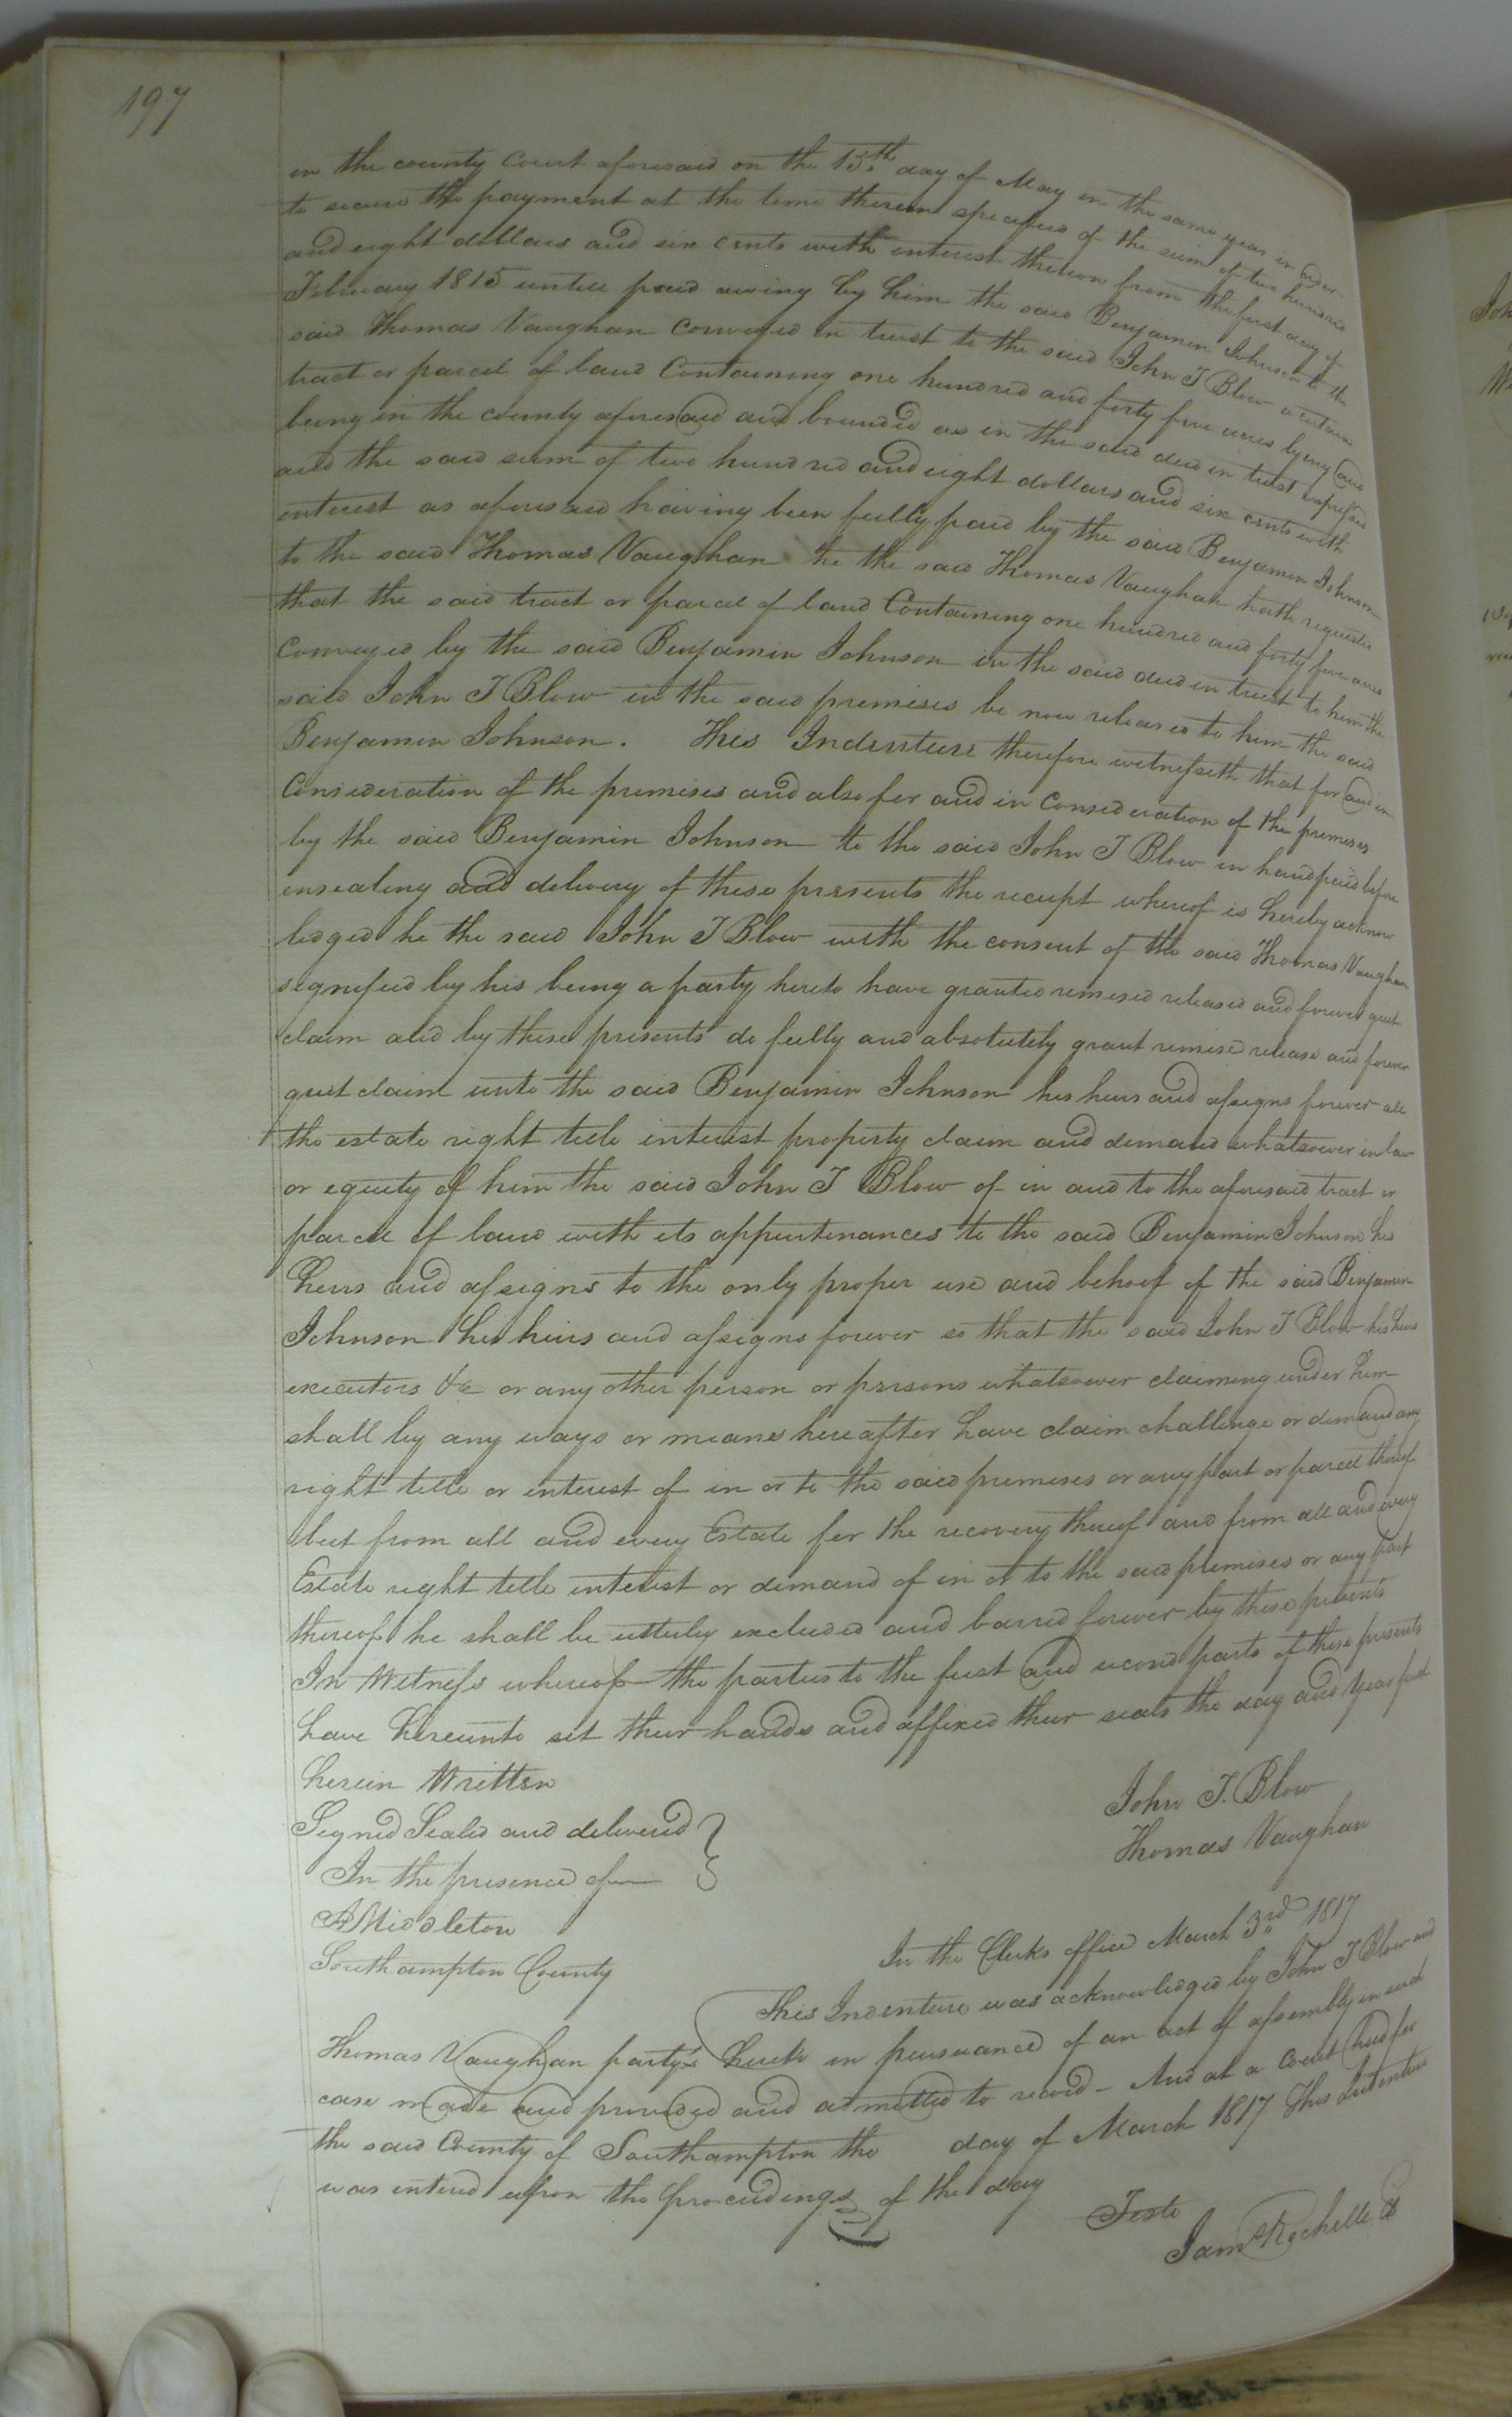 197
in the county Court aforesaid on the 15th day of May in the same year in order
to secure the payment at the time therein specified of the sum of two hundred
and eight dollars and six cents with interest thereon from the first day of
February 1815 untill paid owing by him the said Benjamin Johnson to the
said Thomas Vaughan conveyed in trust to the said John T Blow a certain
tract or parcel of land Containing one hundred and forty five acres lying and
being in the county aforesaid and bounded as in the said deed in trust expressed
and the said sum of two hundred and eight dollars and six cents with
interest as aforesaid having been fully paid by the said Benjamin Johnson
to the said Thomas Vaughan he the said Thomas Vaughan hath requested
that the said tract or parcel of land Containing one hundred and forty five acres
conveyed by the said Benjamin Johnson in the said deed in trust to him the
said John T Blow in the said premises be now released to him the said
Benjamin Johnson. This Indenture therefore witnesseth that for and in
Consideration of the premises and also for and in consideration of the premises
by the said Benjamin Johnson to the said John T Blow in hand paid before
ensealing and delivery of these presents the receipt whereof is hereby acknow
ledged he the said John T Blow with the consent of the said Thomas Vaughan
signified by his being a party hereto have granted remised released and forever quit
claim and by these presents do fully and absolutely grant remised release and forever
quit claim unto the said Benjamin Johnson his heirs and assigns forever all
the estate right title interest property claim and demand whatsoever in law
or equity of him the said John T Blow of in and to the aforesaid tract or
parcel of land with its appurtenances to the said Benjamin Johnson his
heirs and assigns to the only proper use and behoof of the said Benjamin
Johnson his heirs and assigns forever so that the said John T Blow his heirs
executors &c or any other person or persons whatsoever claiming under him
shall by any ways or means hereafter have claim challenge or demand any
right title or interest of in or to the said premises or any part or parcel thereof
but from all and every Estate for the recovery thereof and from all and every
Estate right title interest or demand of in or to the said premises or any part
thereof he shall be utterly excluded and barred forever by these presents
In Witness whereof the parties to the first and second parts of these presents
have hereunto set their hands and affixed their seals the day and year first
herein Written
John T. Blow
Signed Sealed and delivered
Thomas Vaughan
In the presence of
A Middleton
In the Clerks office March 3rd 1817
Southampton County
This Indenture was acknowledged by John T Blow and
Thomas Vaughan party's hereto in pursuance of an act of assembly in such
case made and provided and admitted to record - And at a Court held for
the said County of Southampton the day of March 1817 This Indenture
was entered upon the proceedings of the day
Teste
Sam Rochelle